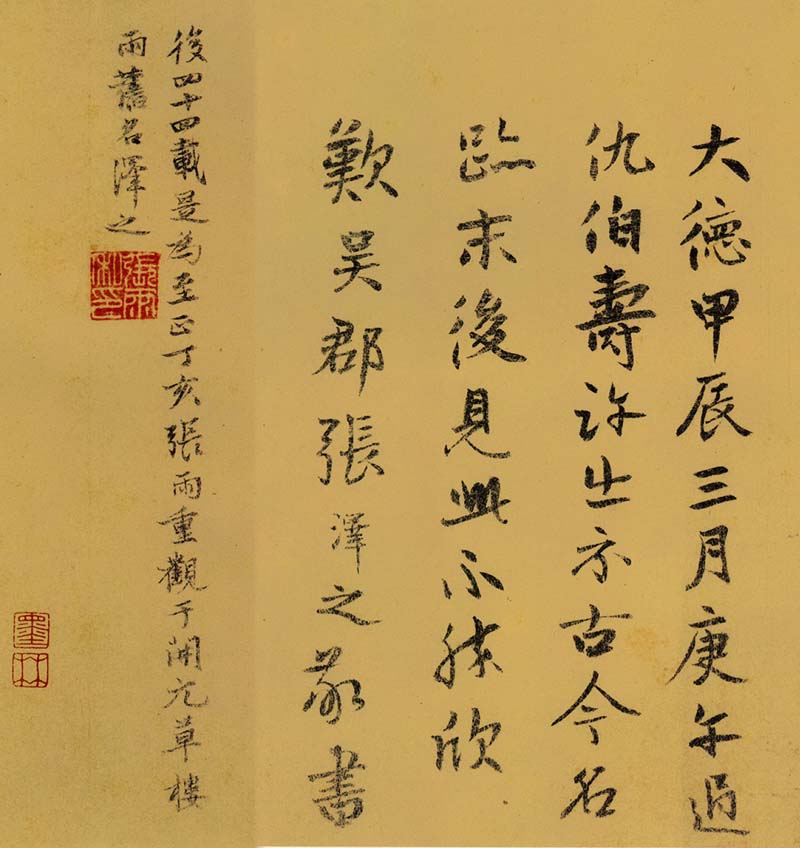 大德甲辰三月庚午過
仇伯壽許出示古今名
跡末後見此不勝欣
歎吳郡張澤之敬書
後四十四載是為至正丁亥張雨重觀于開元草樓
雨舊名澤之
張雨私印
墨林